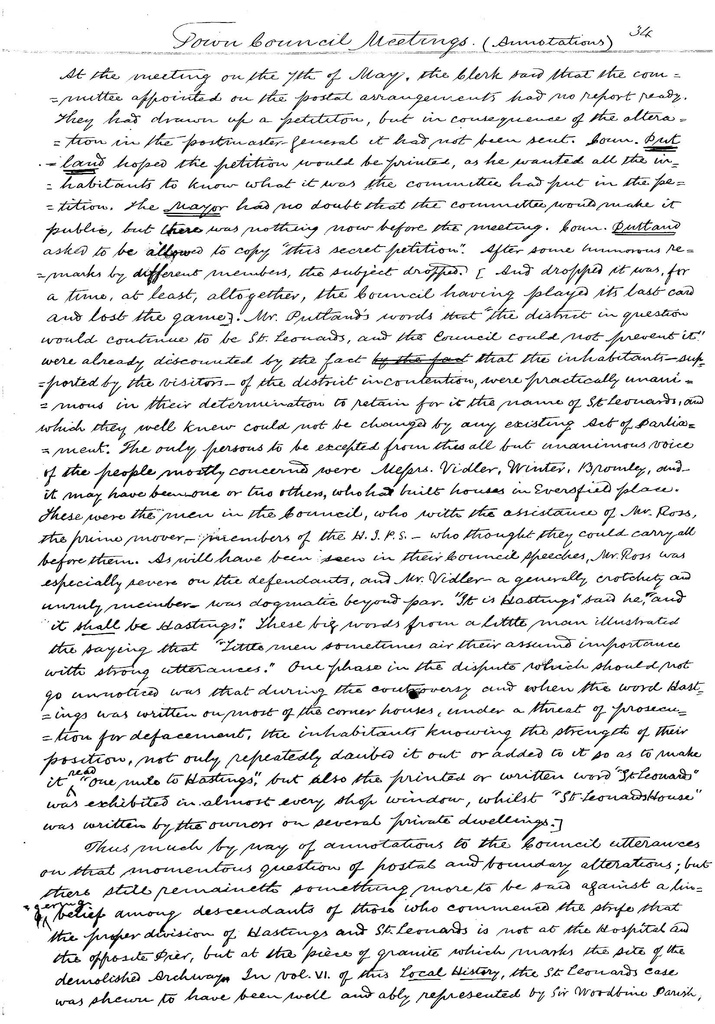 Town Council Meetings. (Annotations) 34
At the meeting on the 7th of May, the Clerk said that the com=
=mittee appointed on the postal arrangements had no report ready.
They had drawn up a petititon, but in consequence of the altera=
=tion in the postmaster-general it had not been sent. Coun. Put
=land hoped the petition would be printed, as he wanted all the in=
=habitants to know what it was the committee had put in the pe=
=tition. The Mayor had no doubt that the committee would make it
public, but there was nothing now before the meeting. Coun. Putland
asked to be allowed to copy "this secret petition". After some humorous re=
=marks by different members, the subject dropped. [And dropped it was, for
a time, at least, altogether, the Council having played its last card
and lost the game]. Mr. Putland's words that "the district in question
would continue to be St. Leonards, and the Council could not prevent it"
were already discounted by the fact by the fact that the inhabitants—sup=
=ported by the visitors—of the district in contention, were practically unani=
=mous in their determination to retain for it the name of St Leonards, and
which they well knew could not be changed by any existing Act of Parlia=
=ment. The only persons to be excepted from this all but unanimous voice
of the people mostly concerned were Messrs. Vidler, Winter, Bromley, and
it may have been one or two others, who had built houses in Eversfield place.
These were the men in the Council, who with the assistance of Mr. Ross,
the prime mover—members of the H.I.P.S.—who thought they could carry all
before them. As will have been seen in their Council speeches, Mr. Ross was
especially severe on the defendants, and Mr. Vidler—a generally crotchety and
unruly member—was dogmatic beyond par. "It is Hastings" said he, "and
it shall be Hastings". These big words from a little man illustrated
the saying that "Little men sometimes air their assumd importance
with strong utterances." One phase in the dispute which should not
go unnoticed was that during the controversy and when the word Hast=
=ings was written on most of the corner houses, under a threat of prosecu=
=tion for defacement, the inhabitants knowing the strength of their
position, not only repeatedly daubed it out or added to it so as to make
it read "One mile to Hastings", but also the printed or written word "St Leonards"
was exhibited in almost every shop window, whilst "St Leonards House"
was written by the owners on several private dwellings.]
Thus much by way of annotations to the Council utterances
on that momentous question of postal and boundary alterations; but
there still remaineth something more to be said against a lin=
=gering belief among descendants of those who commenced the strife that
the proper division of Hastings and St Leonards is not at the Hospital and
the opposite Pier, but at the piece of granite which marks the site of the
demolished Archway. In vol. VI. of this Local History, the St Leonards case
was shewn to have been well and ably represented by Sir Woodbine Parish,